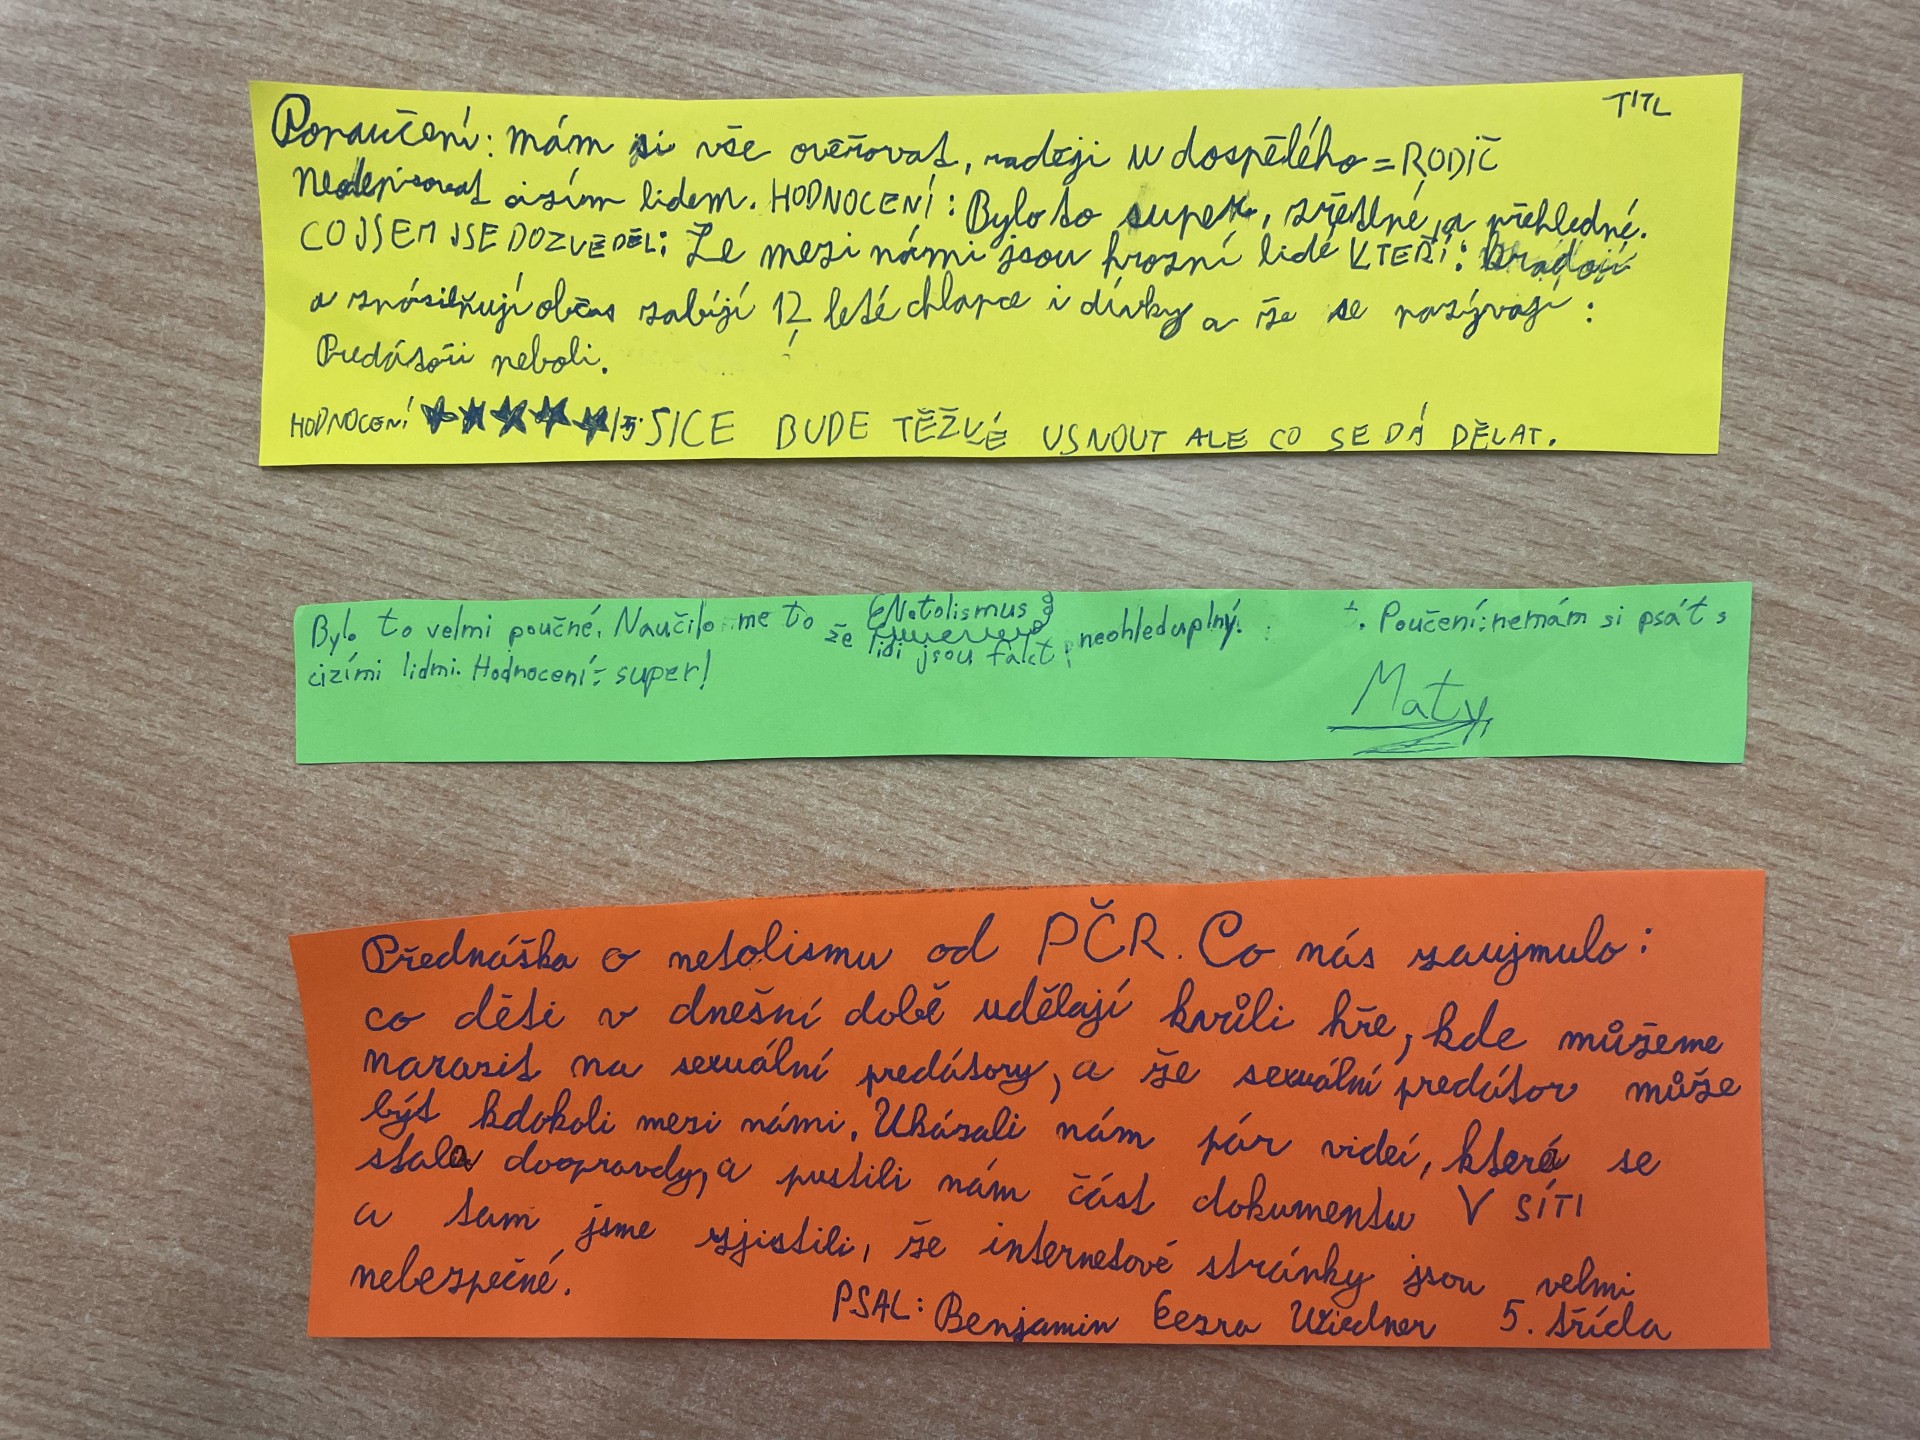 TITL
Ponaučení: mám si vše ověřovat, raději u dospělého = RODIČ
Neodepisovat cizím lidem. HODNOCENÍ: Bylo to super, zřetelné, a přehledné.
CO JSEM JSE DOZVEDĚL: Že mezi námi jsou hrozní lidé KTEŘÍ:
a znásilňují občas zabíjí 12 leté chlapce i dívky a že se nazývají:
Predátoři neboli.
HODNOCENÍ ★★★★★/5. SICE BUDE TĚŽKÉ USNOUT ALE CO SE DÁ DĚLAT.
Bylo to velmi poučné. Naučilo me to Netolismus
že lidi jsou fakt neohleduplný. Poučení: nemám si psát s
cizími lidmi. Hodnocení: super!
Maty
Přednáška o netolismu od PČR. Co nás zaujmulo:
co děti v dnešní době udělají kvůli hře, kde můžeme
narazit na sexuální predátory, a že sexuální predátor může
být kdokoli mezi námi. Ukázali nám pár videí, která se
stala doopravdy, a pustili nám část dokumentu V SÍTI
a tam jsme zjistili, že internetové stránky jsou velmi
nebezpečné.
PSAL: Benjamin Eezra Wiedner 5. třída